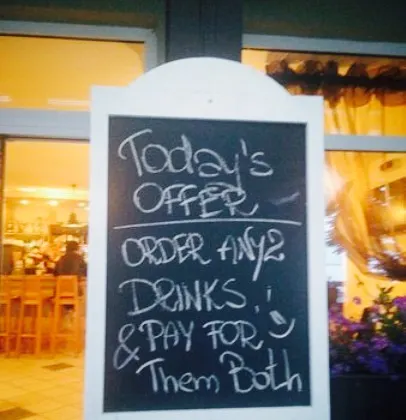 Today's
OFFER
ORDER ANY 2
DRINKS.
& PAY FOR
Them Both